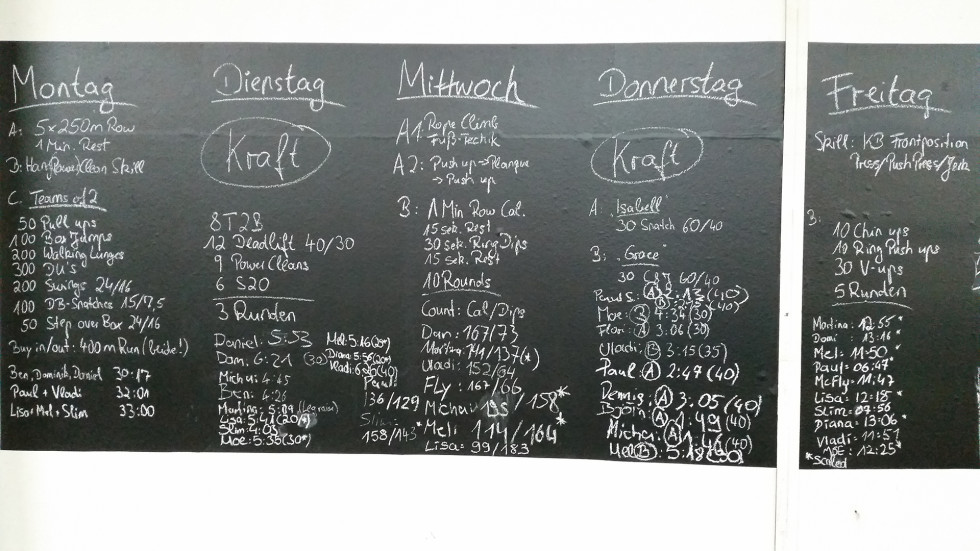 Montag
A: 5x250m Row
1 Min. Rest
B: Hang Power Clean Skill
C. Teams of 2
50 Pull ups
100 Box Jumps
200 Walking Lunges
300 DU's
200 Swings 24/16
100 DB-Snatches 15/7,5
50 Step over Box 24/16
Buy in/out: 400m Run (beide!)
Ben, Dominik, Daniel 30:17
Paul + Vladi 32:01
Lisa + Mel + Slim 33:00
Dienstag
Kraft
8T2B
12 Deadlift 40/30
9 PowerCleans
6 S20
3 Runden
Daniel: 5:53
Dom: 6:21 (30)
Micha: 4:45
Ben: 4:26
Martina: 5:09
Lisa: 5:41
Slim: 4:03
Moe: 5:35(30*)
Mel: 5:16(20*)
Diana: 5:56(20*)
Vladi:
Paul:
136/129
158/143*
Mittwoch
A1: Rope Climb
Fuß-Techik
A2: Push up → Planque
→ Push up
B: 1 Min Row Cal.
15 Sek. Rest
30 Sek. Ring Dips
15 Sek. Rest
10 Rounds
Count: Cal/Dips
Dan: 167/73
Martina: 141/137(*)
Vladi: 152/64
FLy: 167/66
Micha: 135/158*
Mel: 114/164*
Lisa: 99/183
Donnerstag
Kraft
A: Isabell
30 Snatch 60/40
B: Grace
30 C&J 60/40
Paul S.: A
Moe: B 4:34 (30)
Flori: A 3:06 (30)
Vladi: B 3:15 (35)
Paul A 2:47 (40)
Dennis: A 3:05 (40)
Björn: A 1:49 (40)
Micha: A 1:46 (40)
Mel B:
Freitag
Skill: KB Frontposition
Press/Push Press/Jerk
B:
10 Chin ups
10 Ring Push ups
30 V-ups
5 Runden
Martina: 12:55*
Domi: 13:16
Mel: 11:50*
Paul: 06:47
McFly: 11:47
Lisa: 12:18*
Slim: 07:56
Diana: 13:06*
Vladi: 11:51
MOE: 12:25*
*Scaled